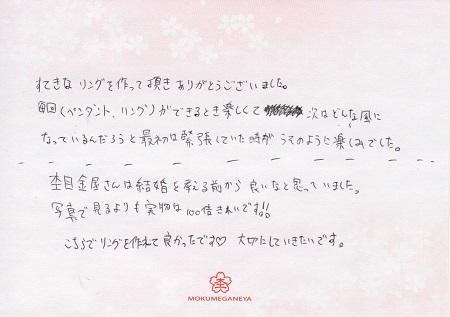 すてきな リングを作って頂き ありがとうございました。
毎回(ペンダント、リング)ができるとき楽しくて 次はどんな風に
なっているんだろうと最初は緊張していた時が うそのように楽しみでした。
杢目金屋さんは結婚を考える前から 良いなと思っていました。
写真で見るよりも実物は100倍きれいです!!
こちらでリングを作れて良かったです♡ 大切にしていきたいです。
MOKUMEGANEYA